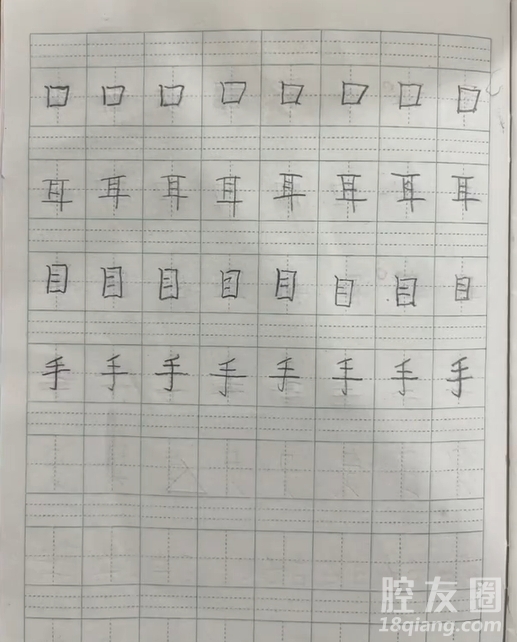 口口口口口口口口
耳耳耳耳耳耳耳耳
目目目目目目目目
手手手手手手手手
腔友圈
18qiang.com